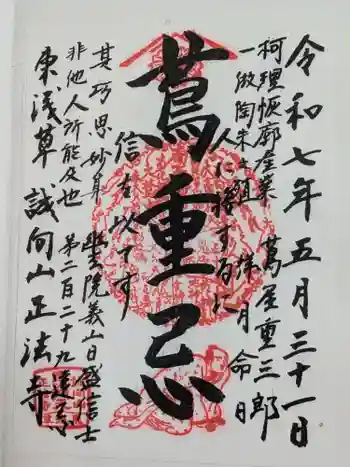 令和七年五月三十一日
柯理恢廓産業 蔦屋重三郎
一倣陶朱 祥月命日
人に接するに
蔦重忌
信を以てす
其巧思妙算 幽玄院義山日盛信士
非他人所能及也 第二百二十九遠忌
東浅草 誠向山正法寺